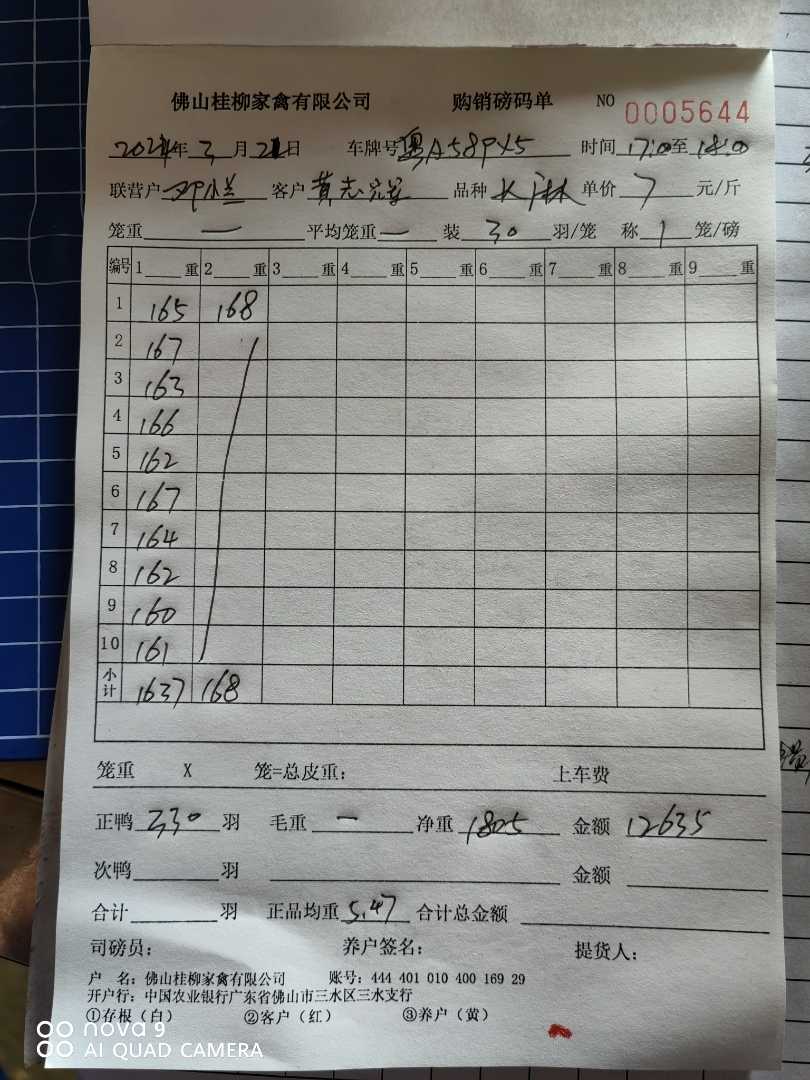 佛山桂柳家禽有限公司 购销磅码单 NO 0005644
2021年3月21日 车牌号粤A58PX5 时间17:00至18:00
联营户邓小兰 客户黄志 品种 单价7元/斤
笼重— 平均笼重— 装30羽/笼 称1笼/磅
编号 1重 2重 3重 4重 5重 6重 7重 8重 9重
1 165 168
2 167
3 163
4 166
5 162
6 167
7 164
8 162
9 160
10 161
小计 1637 168
笼重 X 笼=总皮重: 上车费
正鸭330羽 毛重— 净重1805 金额12635
次鸭 羽 金额
合计 羽 正品均重5.47 合计总金额
司磅员: 养户签名: 提货人:
户 名: 佛山桂柳家禽有限公司 账号: 444 401 010 400 169 29
开户行: 中国农业银行广东省佛山市三水区三水支行
①存根（白） ②客户（红） ③养户（黄）
nova 9
AI QUAD CAMERA